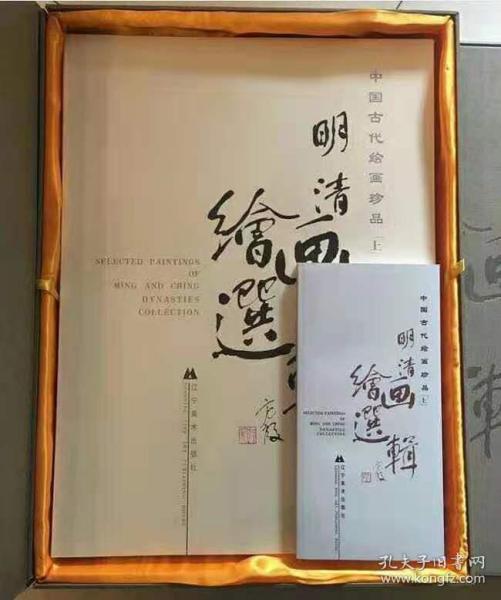 中国古代绘画珍品 上
明清
繪画
選
SELECTED PAINTINGS
OF
MING AND CHING
DYNASTIES
COLLECTION
辽宁美术出版社
中国古代绘画珍品 上
明清
繪画
選輯
SELECTED PAINTINGS
OF
MING AND CHING
DYNASTIES
COLLECTION
辽宁美术出版社
孔夫子旧书网
www.kongfz.com